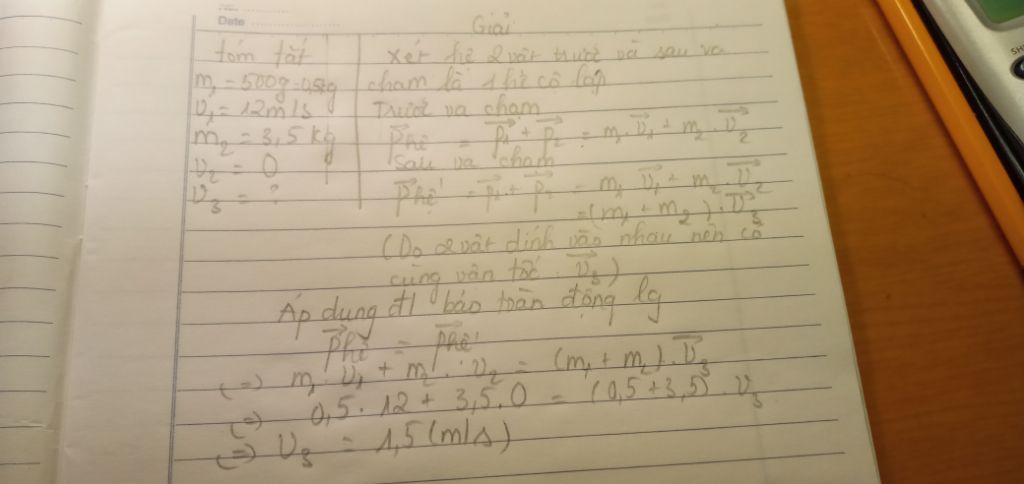 Date
Giải
tóm tắt
m₁ = 500g = 0,5kg
v₁ = 12m/s
m₂ = 3,5 kg
v₂ = 0
v₃ = ?
xét hệ 2 vật trước và sau va
chạm là 1 hệ cô lập
Trước va chạm
p⃗hệ = p⃗₁ + p⃗₂ = m₁.v⃗₁ + m₂.v⃗₂
sau va chạm
p⃗hệ' = p⃗₁ + p⃗₂ = m₁.v⃗₁ + m₂.v⃗₂
= (m₁ + m₂).v⃗₃
(Do 2 vật dính vào nhau nên có
cùng vận tốc v⃗₃)
Áp dụng đl bảo toàn động lg
p⃗hệ = p⃗hệ'
(=) m₁.v₁ + m₂.v₂ = (m₁ + m₂).v⃗₃
(=) 0,5.12 + 3,5.0 = (0,5+3,5).v₃
(=) v₃ = 1,5 (m/s)